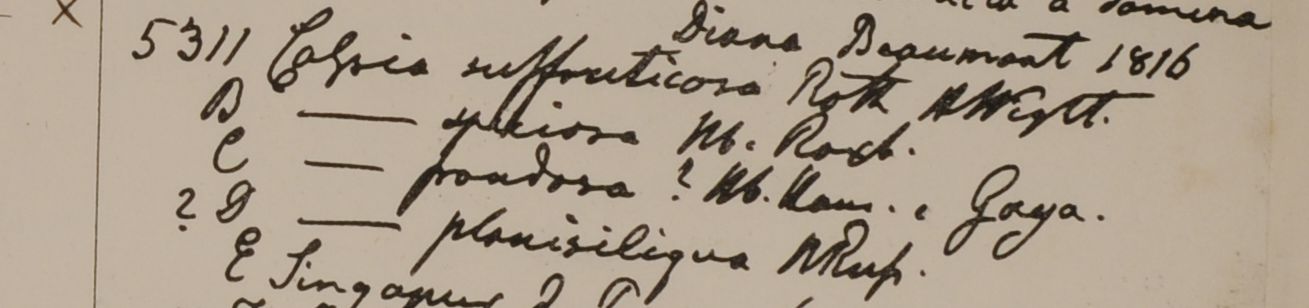 a domina
Diana Beaumont 1816
5311 Cassia suffruticosa Roth HWight.
B — speciosa Hb. Roxb.
C — frondosa ? Hb. Ham. e Goya.
? D — planisiliqua HRup.
E Singapur